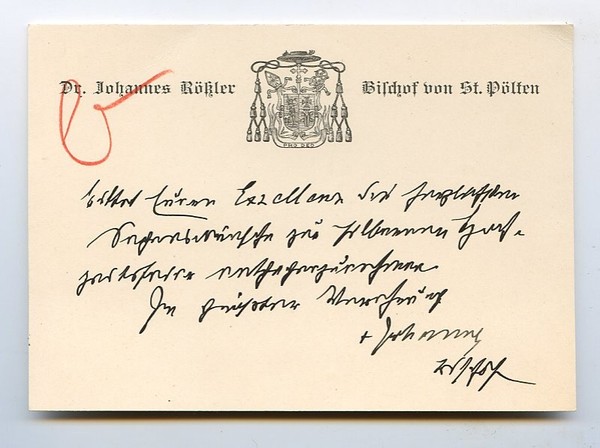 Dr. Johannes Rößler Bischof von St. Pölten
PRO DEO
bittet Euere Exzellenz die herzlichsten
Segenswünsche zur silbernen Hoch-
zeitsfeier entgegenzunehmen.
In Verehrung
+ Johannes
Bischof